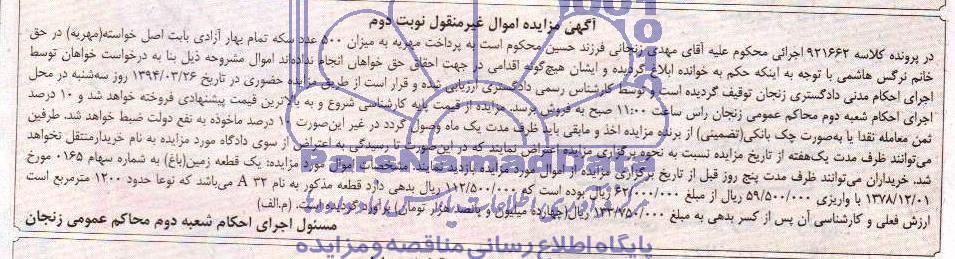 آگهی مزایده اموال غیرمنقول نوبت دوم
در پرونده کلاسه ۹۲۱۶۶۲ اجرائی محکوم علیه آقای مهدی زنجانی فرزند حسین محکوم است به پرداخت مهریه به میزان ۵۰۰ عدد سکه تمام بهار آزادی بابت اصل خواسته(مهریه) در حق
خانم نرگس هاشمی با توجه به اینکه حکم به خوانده ابلاغ گردیده و ایشان هیچ‌گونه اقدامی در جهت احقاق حق خواهان انجام نداده‌اند اموال مشروحه ذیل بنا به درخواست خواهان توسط
اجرای احکام مدنی دادگستری زنجان توقیف گردیده است و توسط کارشناس رسمی دادگستری ارزیابی شده و قرار است از طریق مزایده حضوری در تاریخ ۱۳۹۴/۰۳/۲۶ روز سه‌شنبه در محل
اجرای احکام شعبه دوم محاکم عمومی زنجان راس ساعت ۱۱:۰۰ صبح به فروش برسد. مزایده از قیمت پایه کارشناسی شروع و به بالاترین قیمت پیشنهادی فروخته خواهد شد و ۱۰ درصد
ثمن معامله نقدا یا به‌صورت چک بانکی(تضمینی) از برنده مزایده اخذ و مابقی باید ظرف مدت یک ماه وصول گردد در غیر این‌صورت ۱۰ درصد ماخوذه به نفع دولت ضبط خواهد شد. طرفین
می‌توانند ظرف مدت یک‌هفته از تاریخ مزایده نسبت به نحوه برگزاری مزایده اعتراض نمایند که در این‌صورت تا رسیدگی به اعتراض از سوی دادگاه مورد مزایده به نام خریدار منتقل نخواهد
شد. خریداران می‌توانند ظرف مدت پنج روز قبل از تاریخ برگزاری مزایده از اموال مورد مزایده بازدید نمایند. مشخصات اموال مورد مزایده: یک قطعه زمین(باغ) به شماره سهام ۰۱۶۵ مورخ
۱۳۷۸/۱۲/۰۱ با واریزی ۵۹/۵۰۰/۰۰۰ ریال از مبلغ ۶۲/۰۰۰/۰۰۰ ریال بوده است که ۱۱۲/۵۰۰/۰۰۰ ریال بدهی دارد قطعه مذکور به نام A ۳۲ می‌باشد که نوعا حدود ۱۲۰۰ مترمربع است
ارزش فعلی و کارشناسی آن پس از کسر بدهی به مبلغ ریال(چهارده میلیون و پانصد هزار تومان) برآورد گردیده است. (م.الف)
مسئول اجرای احکام شعبه دوم محاکم عمومی زنجان
ParsNamadData
پایگاه اطلاع رسانی مناقصه و مزایده